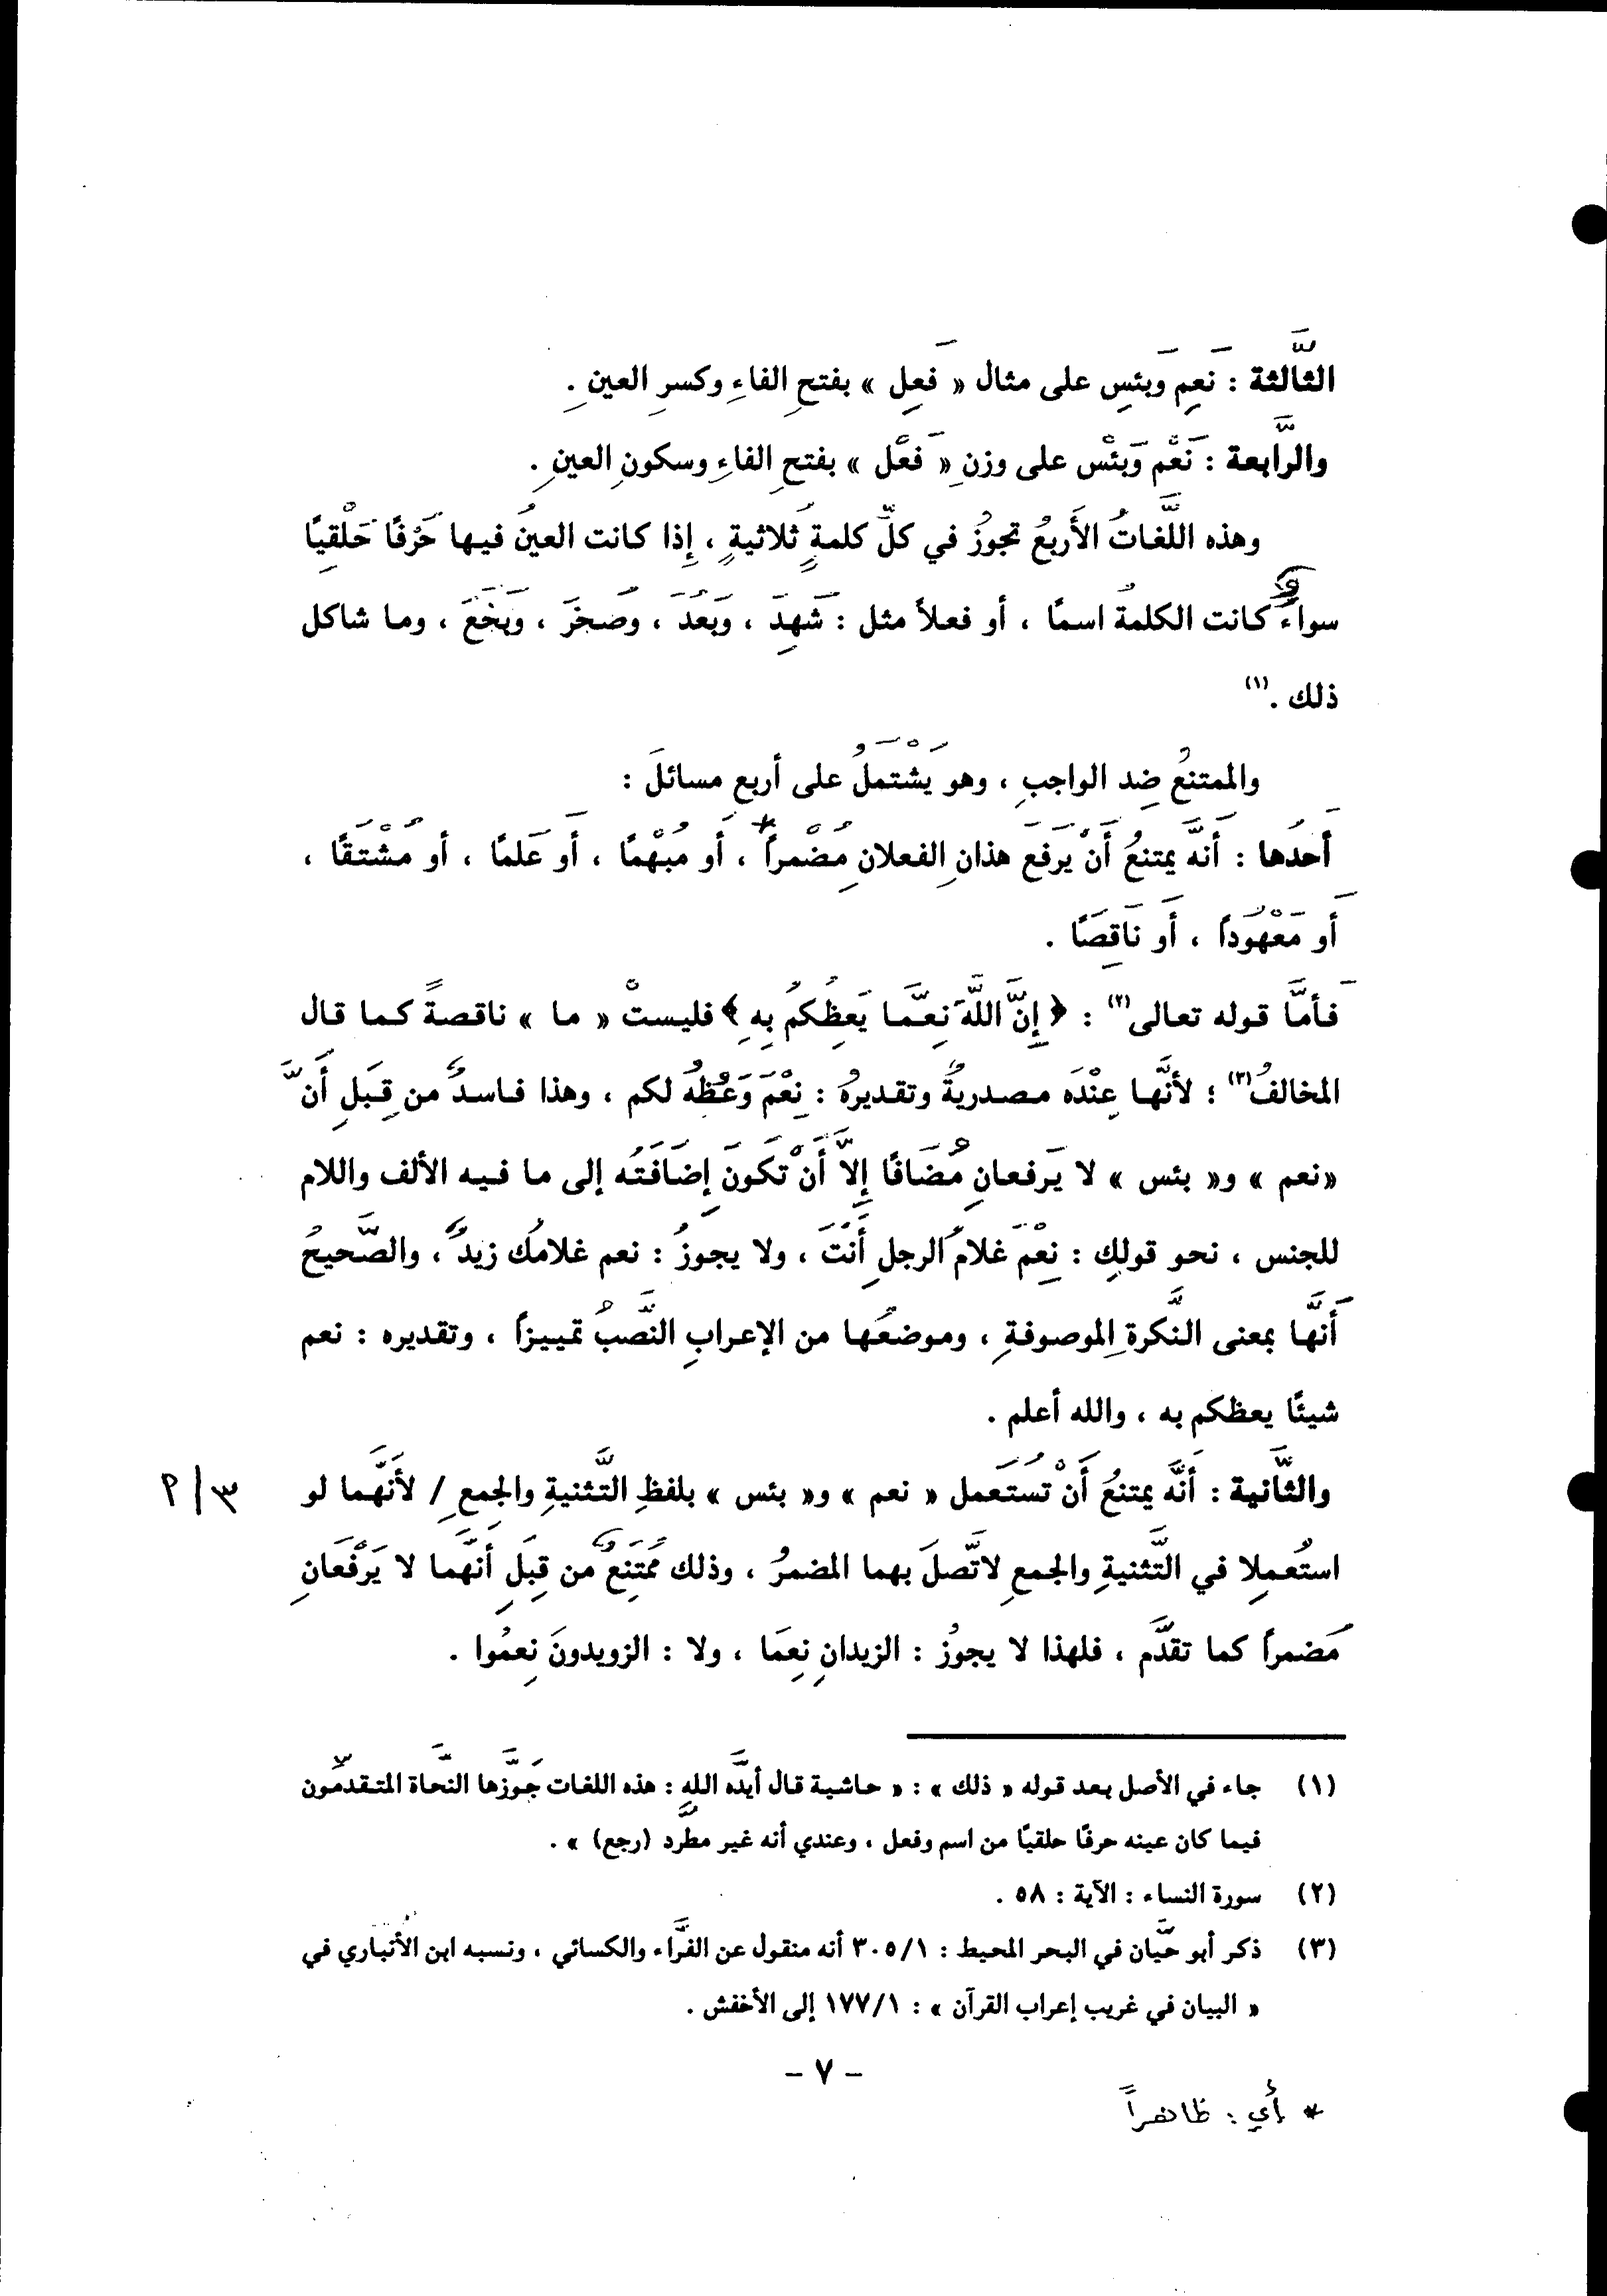 الثَّالثة : نَعِم وَبَئِس على مثال « فَعِل » بفتحِ الفاءِ وكسرِ العينِ .
والرَّابعة : نَعْم وَبَئْس على وزنِ « فَعْل » بفتحِ الفاءِ وسكونِ العينِ .
وهذه اللَّغاتُ الأَربعُ تجوزُ في كلِّ كلمةٍ ثَلاثيةٍ ، إِذا كانت العينُ فيها حَرْفًا حَلْقيًا
سواءٌ كانت الكلمةُ اسمًا ، أو فعلاً مثل : شَهِدَ ، وَبَعُدَ ، وَصَخَرَ ، وَبَخَعَ ، وما شاكل
ذلك .(١)
والممتنعُ ضِد الواجبِ ، وهو يَشْتَملُ على أربعِ مسائلَ :
أَحَدُها : أَنَّه يمتنعُ أَنْ يَرفَع هذانِ الفعلانِ مُضْمراً* ، أَو مُبْهمًا ، أَو عَلَمًا ، أو مُشْتَقًا ،
أَو مَعْهُوداً ، أَو نَاقِصًا .
فَأمَّا قوله تعالى(٢) : ﴿ إِنَّ اللَّهَ نِعِمَّا يَعِظُكُم بِهِ ﴾ فليستْ « ما » ناقصةً كما قال
المخالفُ(٣) ؛ لأنَّها عِنْدَه مصدريةٌ وتقديرهُ : نِعْمَ وَعْظُهُ لكم ، وهذا فاسدٌ من قِبَلِ أَنَّ
«نعم » و« بئس » لا يَرفعانِ مُضَافًا إِلاَّ أَنْ تَكونَ إِضَافَتُه إلى ما فيه الألف واللام
للجنس ، نحو قولِك : نِعْمَ غلامُ الرجلِ أَنتَ ، ولا يجوزُ : نعم غلامُك زيدٌ ، والصَّحيحُ
أَنَّها بمعنى النَّكرةِ الموصوفةِ ، وموضعُها من الإعرابِ النَّصبُ تمييزاً ، وتقديره : نعم
شيئًا يعظكم به ، والله أعلم .
والثَّانية : أَنَّه يمتنعُ أَنْ تُستَعمل « نعم » و« بئس » بلفظِ التَّثنيةِ والجمعِ / لأَنَّهما لو
٣/٢
استُعمِلا في التَّثنيةِ والجمعِ لاتَّصلَ بهما المضمرُ ، وذلك مُمْتَنِعٌ من قِبَلِ أنَّهما لا يَرْفَعَانِ
مَضمراً كما تقدَّم ، فلهذا لا يجوزُ : الزيدانِ نِعمَا ، ولا : الزويدونَ نِعمُوا .
(١) جاء في الأصل بعد قوله « ذلك » : « حاشية قال أيدَّه الله : هذه اللغات جَوَّزها النحاة المتقدمّون
فيما كان عينه حرفًا حلقيًا من اسم وفعل ، وعندي أنه غير مطَّرد (رجع) » .
(٢) سورة النساء : الآية : ٥٨ .
(٣) ذكر أبو حيَّان في البحر المحيط : ٣٠٥/١ أنه منقول عن الفرَّاء والكسائي ، ونسبه ابن الأنباري في
« البيان في غريب إعراب القرآن » : ١٧٧/١ إلى الأخفش .
- ٧ -
* أي : ظاهراً